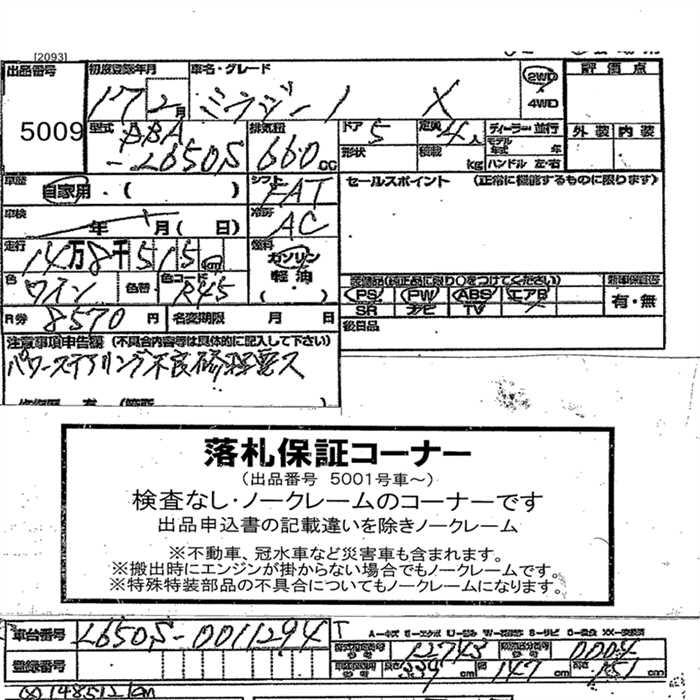 [2093]
出品番号 初度登録年月 車名・グレード 2WD 評価点
5009 17 2月 ミラジーノ X 4WD
型式 排気量 ドア 定員 ディーラー 並行 外装 内装
DBA-L650S 660cc 5 4人 モデル年式 年
形状 積載 kg ハンドル 左・右
車歴 自家用・( ) シフト FAT セールスポイント (正常に機能するものに限ります)
車検 年 月( 日) 冷房 AC
走行 14万8千515km 燃料 ガソリン
軽油
色 ワイン 色替 色コード R45 ( ・ )
装備品(純正品に限り〇をつけてください) 新車保証書
PS PW ABS エアB 有・無
SR ナビ TV
R券 8570円 名変期限 月 日 後日品
注意事項申告欄 (不具合内容等は具体的に記入して下さい)
パワーステアリング不良修理要ス
落札保証コーナー
(出品番号 5001号車~)
検査なし・ノークレームのコーナーです
出品申込書の記載違いを除きノークレーム
※不動車、冠水車など災害車も含まれます。
※搬出時にエンジンが掛からない場合でもノークレームです。
※特殊特装部品の不具合についてもノークレームになります。
車台番号 L650S-0011294 T
型式指定番号 12743 類別区分番号 0004
登録番号 長さ 339cm 幅 147cm 高さ 151cm
148512km